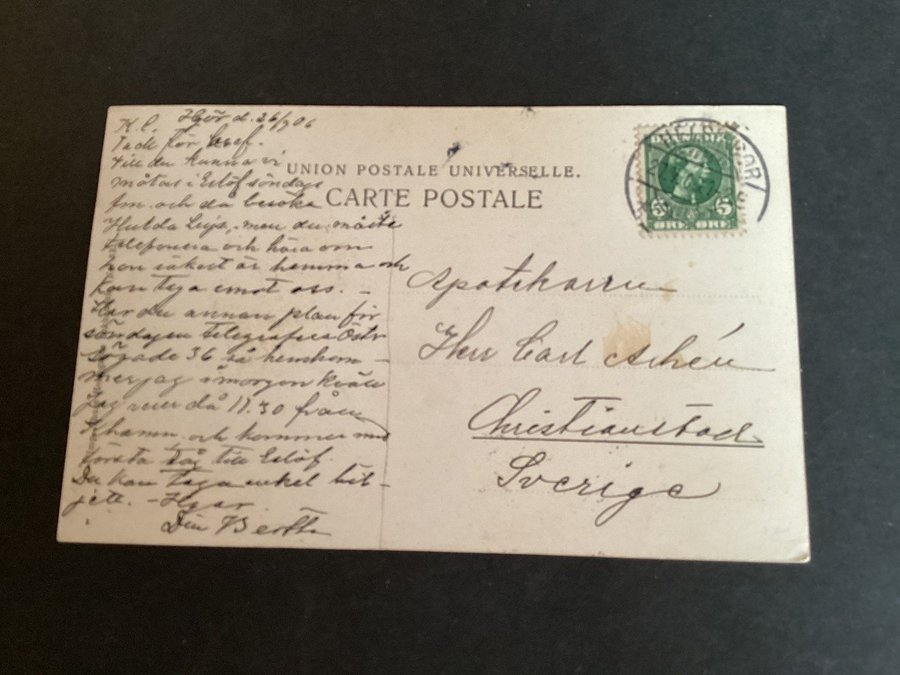 K. C. Hör d. 26/7 06
Tack för bref.
vill du kunna vi
mötas i Eslöf söndags
fm. och då besöka
Hulda men du måste
telefonera och höra om
hon säkert är hemma och
kan taga emot oss. –
Har du annan plan för
söndagen telegrafera Östr
Sögade 36 så hemkom-
mer jag i morgon kväll
Jag reser då 11.30 från
Khamn och kommer med
första tåg till Eslöf.
Du kan taga enkel bil-
jett. –
Din Bertha
UNION POSTALE UNIVERSELLE.
CARTE POSTALE
HELSINGØR
5 5
ØRE ØRE
Apotekaren
Herr Carl
Christianstad
Sverige